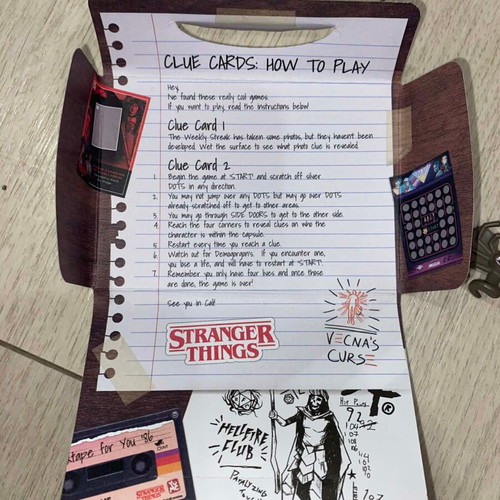 CLUE CARDS: HOW TO PLAY
Hey,
I've found these really cool games.
If you want to play, read the instructions below!
Clue Card 1
The Weekly Streak has taken some photos, but they haven't been
developed. Wet the surface to see what photo clue is revealed.
Clue Card 2
1. Begin the game at 'START' and scratch off silver
DOTS in any direction.
2. You may not jump over any DOTS but may go over DOTS
already scratched off to get to other areas.
3. You may go through SIDE DOORS to get to the other side.
4. Reach the four corners to reveal clues on who the
character is within the capsule.
5. Restart every time you reach a clue.
6. Watch out for Demogorgons. If you encounter one,
you lose a life, and will have to restart at 'START'.
7. Remember you only have four lives and once those
are done, the game is over!
See you in Cali!
STRANGER
THINGS
VECNA'S
CURSE
HELLFIRE
CLUB
PARALYZING
tape for You '86
STRANGER
THINGS